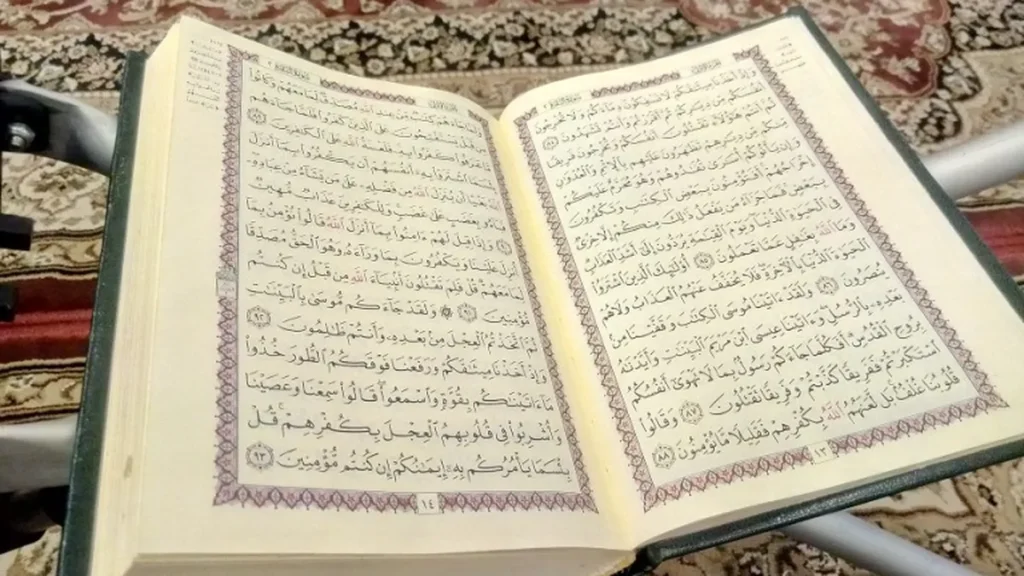 وَإِذْ أَخَذْنَا مِيثَٰقَكُمْ لَا تَسْفِكُونَ دِمَآءَكُمْ وَلَا تُخْرِجُونَ
أَنفُسَكُم مِّن دِيَٰرِكُمْ ثُمَّ أَقْرَرْتُمْ وَأَنتُمْ تَشْهَدُونَ ٨٤
ثُمَّ أَنتُمْ هَٰٓؤُلَآءِ تَقْتُلُونَ أَنفُسَكُمْ وَتُخْرِجُونَ فَرِيقًا
مِّنكُم مِّن دِيَٰرِهِمْ تَظَٰهَرُونَ عَلَيْهِم بِٱلْإِثْمِ وَٱلْعُدْوَٰنِ
وَإِن يَأْتُوكُمْ أُسَٰرَىٰ تُفَٰدُوهُمْ وَهُوَ مُحَرَّمٌ عَلَيْكُمْ
إِخْرَاجُهُمْ أَفَتُؤْمِنُونَ بِبَعْضِ ٱلْكِتَٰبِ وَتَكْفُرُونَ
بِبَعْضٍ فَمَا جَزَآءُ مَن يَفْعَلُ ذَٰلِكَ مِنكُمْ إِلَّا خِزْىٌ
فِى ٱلْحَيَوٰةِ ٱلدُّنْيَا وَيَوْمَ ٱلْقِيَٰمَةِ يُرَدُّونَ إِلَىٰٓ أَشَدِّ ٱلْعَذَابِ
وَمَا ٱللَّهُ بِغَٰفِلٍ عَمَّا تَعْمَلُونَ ٨٥ أُو۟لَٰٓئِكَ ٱلَّذِينَ ٱشْتَرَوُا۟
ٱلْحَيَوٰةَ ٱلدُّنْيَا بِٱلْءَاخِرَةِ فَلَا يُخَفَّفُ عَنْهُمُ ٱلْعَذَابُ وَلَا هُمْ
يُنصَرُونَ ٨٦ وَلَقَدْ ءَاتَيْنَا مُوسَى ٱلْكِتَٰبَ وَقَفَّيْنَا مِنۢ
بَعْدِهِۦ بِٱلرُّسُلِ وَءَاتَيْنَا عِيسَى ٱبْنَ مَرْيَمَ ٱلْبَيِّنَٰتِ وَأَيَّدْنَٰهُ
بِرُوحِ ٱلْقُدُسِ أَفَكُلَّمَا جَآءَكُمْ رَسُولٌۢ بِمَا لَا تَهْوَىٰٓ أَنفُسُكُمُ
ٱسْتَكْبَرْتُمْ فَفَرِيقًا كَذَّبْتُمْ وَفَرِيقًا تَقْتُلُونَ ٨٧ وَقَالُوا۟
قُلُوبُنَا غُلْفٌۢ بَل لَّعَنَهُمُ ٱللَّهُ بِكُفْرِهِمْ فَقَلِيلًا مَّا يُؤْمِنُونَ ٨٨
١٣
وَلَمَّا جَآءَهُمْ كِتَٰبٌ مِّنْ عِندِ ٱللَّهِ مُصَدِّقٌ لِّمَا مَعَهُمْ وَكَانُوا۟
مِن قَبْلُ يَسْتَفْتِحُونَ عَلَى ٱلَّذِينَ كَفَرُوا۟ فَلَمَّا جَآءَهُم
مَّا عَرَفُوا۟ كَفَرُوا۟ بِهِۦ فَلَعْنَةُ ٱللَّهِ عَلَى ٱلْكَٰفِرِينَ ٨٩
بِئْسَمَا ٱشْتَرَوْا۟ بِهِۦٓ أَنفُسَهُمْ أَن يَكْفُرُوا۟ بِمَآ أَنزَلَ
ٱللَّهُ بَغْيًا أَن يُنَزِّلَ ٱللَّهُ مِن فَضْلِهِۦ عَلَىٰ مَن يَشَآءُ مِنْ عِبَادِهِۦ
فَبَآءُو بِغَضَبٍ عَلَىٰ غَضَبٍ وَلِلْكَٰفِرِينَ عَذَابٌ مُّهِينٌ
٩٠ وَإِذَا قِيلَ لَهُمْ ءَامِنُوا۟ بِمَآ أَنزَلَ ٱللَّهُ قَالُوا۟ نُؤْمِنُ بِمَآ
أُنزِلَ عَلَيْنَا وَيَكْفُرُونَ بِمَا وَرَآءَهُۥ وَهُوَ ٱلْحَقُّ مُصَدِّقًا
لِّمَا مَعَهُمْ قُلْ فَلِمَ تَقْتُلُونَ أَنۢبِيَآءَ ٱللَّهِ مِن قَبْلُ إِن كُنتُم
مُّؤْمِنِينَ ٩١ ۞ وَلَقَدْ جَآءَكُم مُّوسَىٰ بِٱلْبَيِّنَٰتِ
ثُمَّ ٱتَّخَذْتُمُ ٱلْعِجْلَ مِنۢ بَعْدِهِۦ وَأَنتُمْ ظَٰلِمُونَ ٩٢
وَإِذْ أَخَذْنَا مِيثَٰقَكُمْ وَرَفَعْنَا فَوْقَكُمُ ٱلطُّورَ خُذُوا۟
مَآ ءَاتَيْنَٰكُم بِقُوَّةٍ وَٱسْمَعُوا۟ قَالُوا۟ سَمِعْنَا وَعَصَيْنَا
وَأُشْرِبُوا۟ فِى قُلُوبِهِمُ ٱلْعِجْلَ بِكُفْرِهِمْ قُلْ
بِئْسَمَا يَأْمُرُكُم بِهِۦٓ إِيمَٰنُكُمْ إِن كُنتُم مُّؤْمِنِينَ ٩٣
١٤